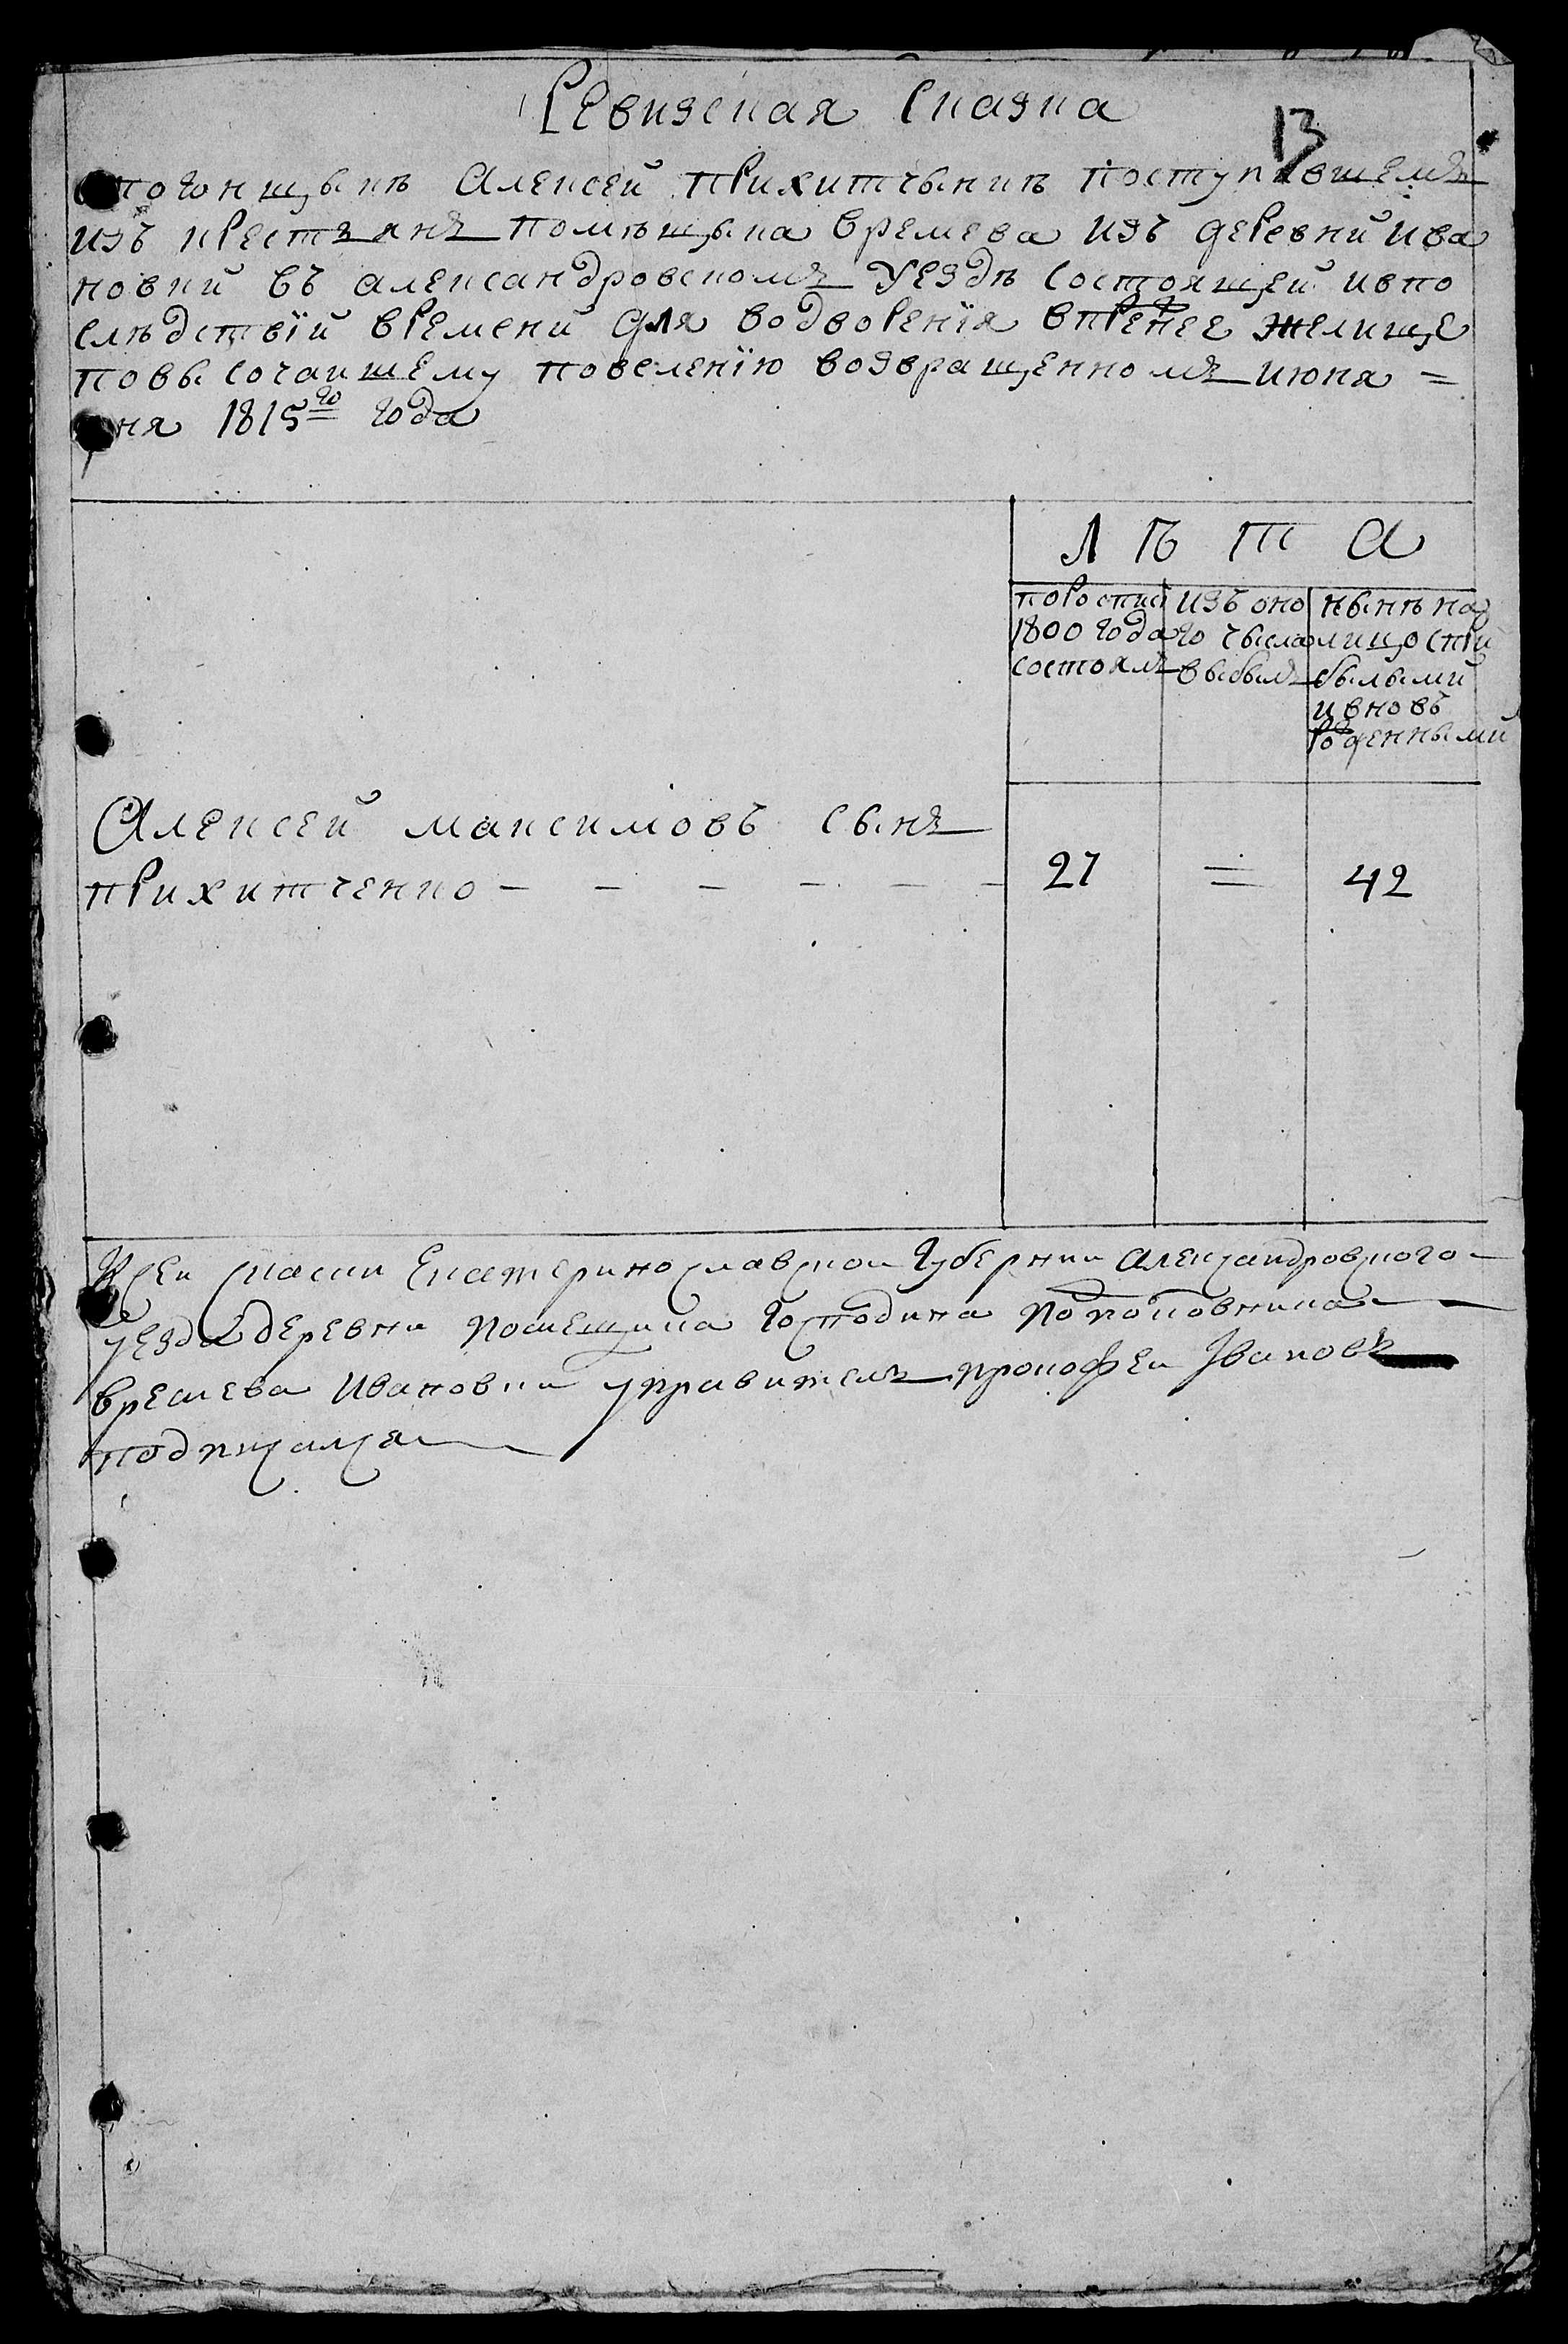 Ревизская Сказка
13
о погонщыкѣ Алексей прихитчынкѣ поступившемъ
изъ крестъянъ помѣщыка Времева изъ деревни Ива
новки въ александровскомъ уездѣ состоящей ивпо
слѣдствїй времени для водворенїя впренее желище
повысочаишему повеленїю возвращенномъ июня =
дня 1815го года
Лѣта
поРоспис
1800 года
состоялъ
изъ оно
го чысла
выбылъ
нынѣ на
лицо стѣ
былыми
ивновь
рожденными
Алексей максимовъ сынъ
прихитченко - - - - - -
27
=
42
Ксеи скаски Екатеринославскои Губернии Александровского
уезда деревни помещика Господина Полковника
Времева Ивановки управителъ прокофеи Iвановъ
подписался